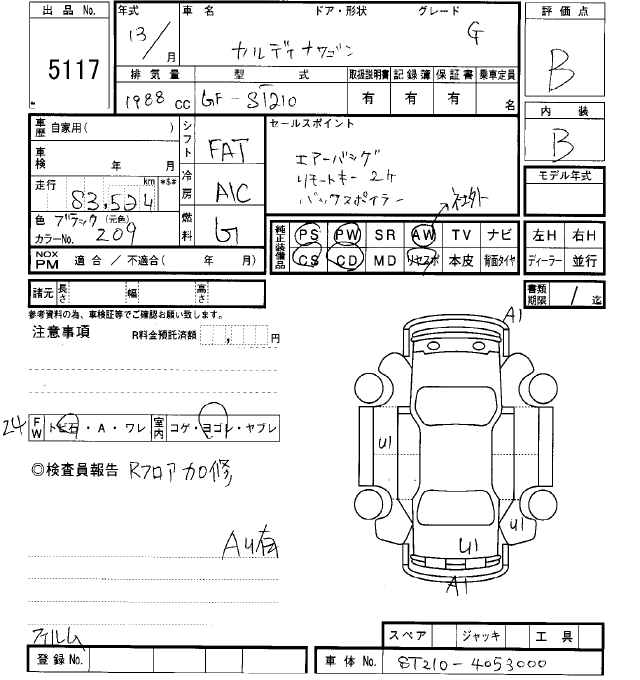 出品 No. 年式 車名 ドア・形状 グレード 評価点
5117 13/ 月 カルディナワゴン G B
排気量 型式 取扱説明書 記録簿 保証書 乗車定員
1988 CC GF-ST210 有 有 有 名
内装
B
車歴 自家用( ) シフト FAT セールスポイント
車検 年 月
エアーバッグ
リモートキー 2ケ
バックスポイラー
モデル年式
走行 83,524 km *$# 冷房 A/C
色 ブラック (元色) 燃料 G
カラーNo. 209
社外
純正装備品 PS PW SR AW TV ナビ 左H 右H
CS CD MD リヤスポ 本皮 背面タイヤ ディーラー 並行
NOX PM 適合 / 不適合( 年 月)
諸元 長さ 幅 高さ 書類期限 / 迄
参考資料の為、車検証等でご確認お願い致します。
注意事項 R料金預託済額 , 円
A1
24 FW トビ石・A・ワレ 室内 コゲ・ヨゴレ・ヤブレ
U1
◎検査員報告 Rフロア カロ修
U1
AU有 U1
A1
フィルム
スペア ジャッキ 工具
登録 No. 車体 No. ST210-4053000